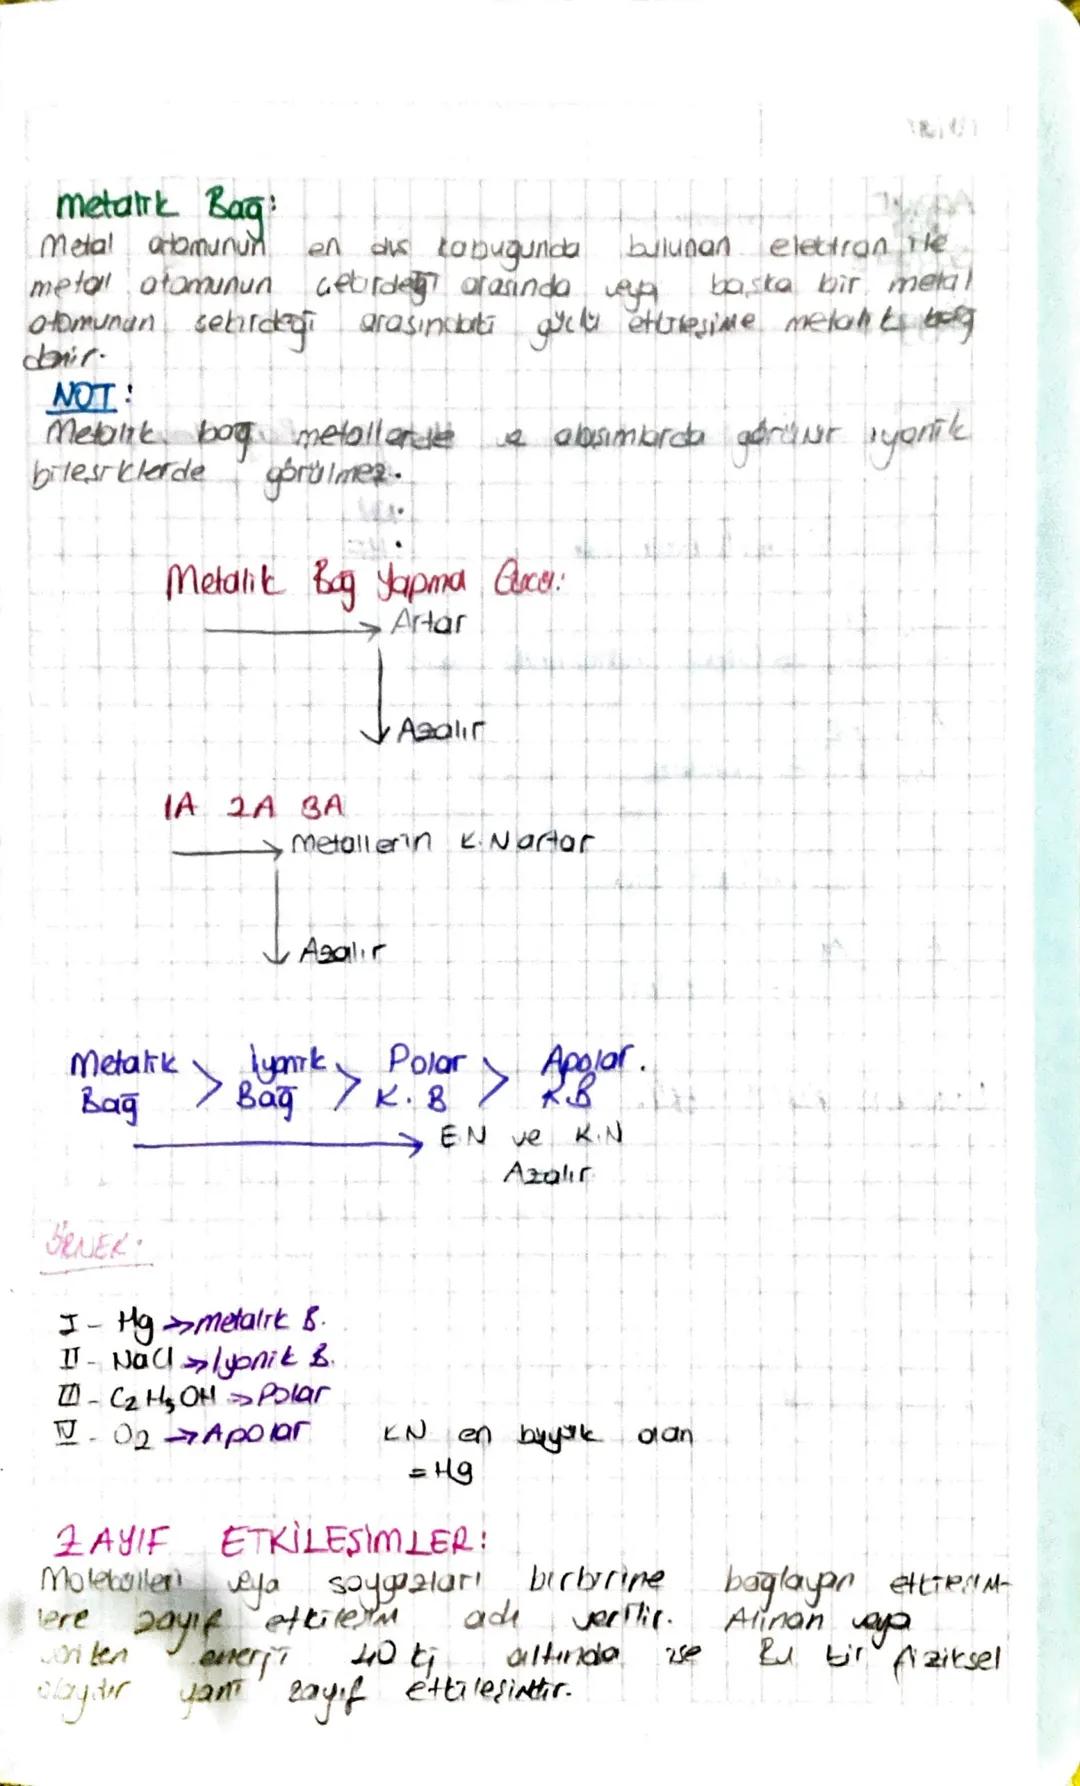 Metalik Bağ:
Metal atomunun en dış kabuğunda bulunan elektron ile
metal atomunun çekirdeği arasında veya başka bir metal
atomunun çekirdeği arasındaki güçlü etkileşime metalik bağ
denir.
NOT:
Metalik bağ metallerde ve alaşımlarda görülür iyonik
bileşiklerde görülmez.
Metalik Bağ Yapma Gücü:
Artar
Azalır
1A 2A 3A
Metallerin K.N artar
Azalır
Metalik Bağ > İyonik Bağ > Polar K.B > Apolar K.B
E.N ve K.N
Azalır
ÖRNEK:
I- Hg → metalik B.
II- NaCl → İyonik B.
III- C2H5OH → Polar
IV- O2 → Apolar
KN en büyük olan
= Hg
ZAYIF ETKİLEŞİMLER:
Molekülleri veya soygazları birbirine bağlayan etkileşim-
lere zayıf etkileşim adı verilir. Alınan veya
verilen enerji 40 kj altında ise Bu bir fiziksel
olaydır yani zayıf etkileşimtir.